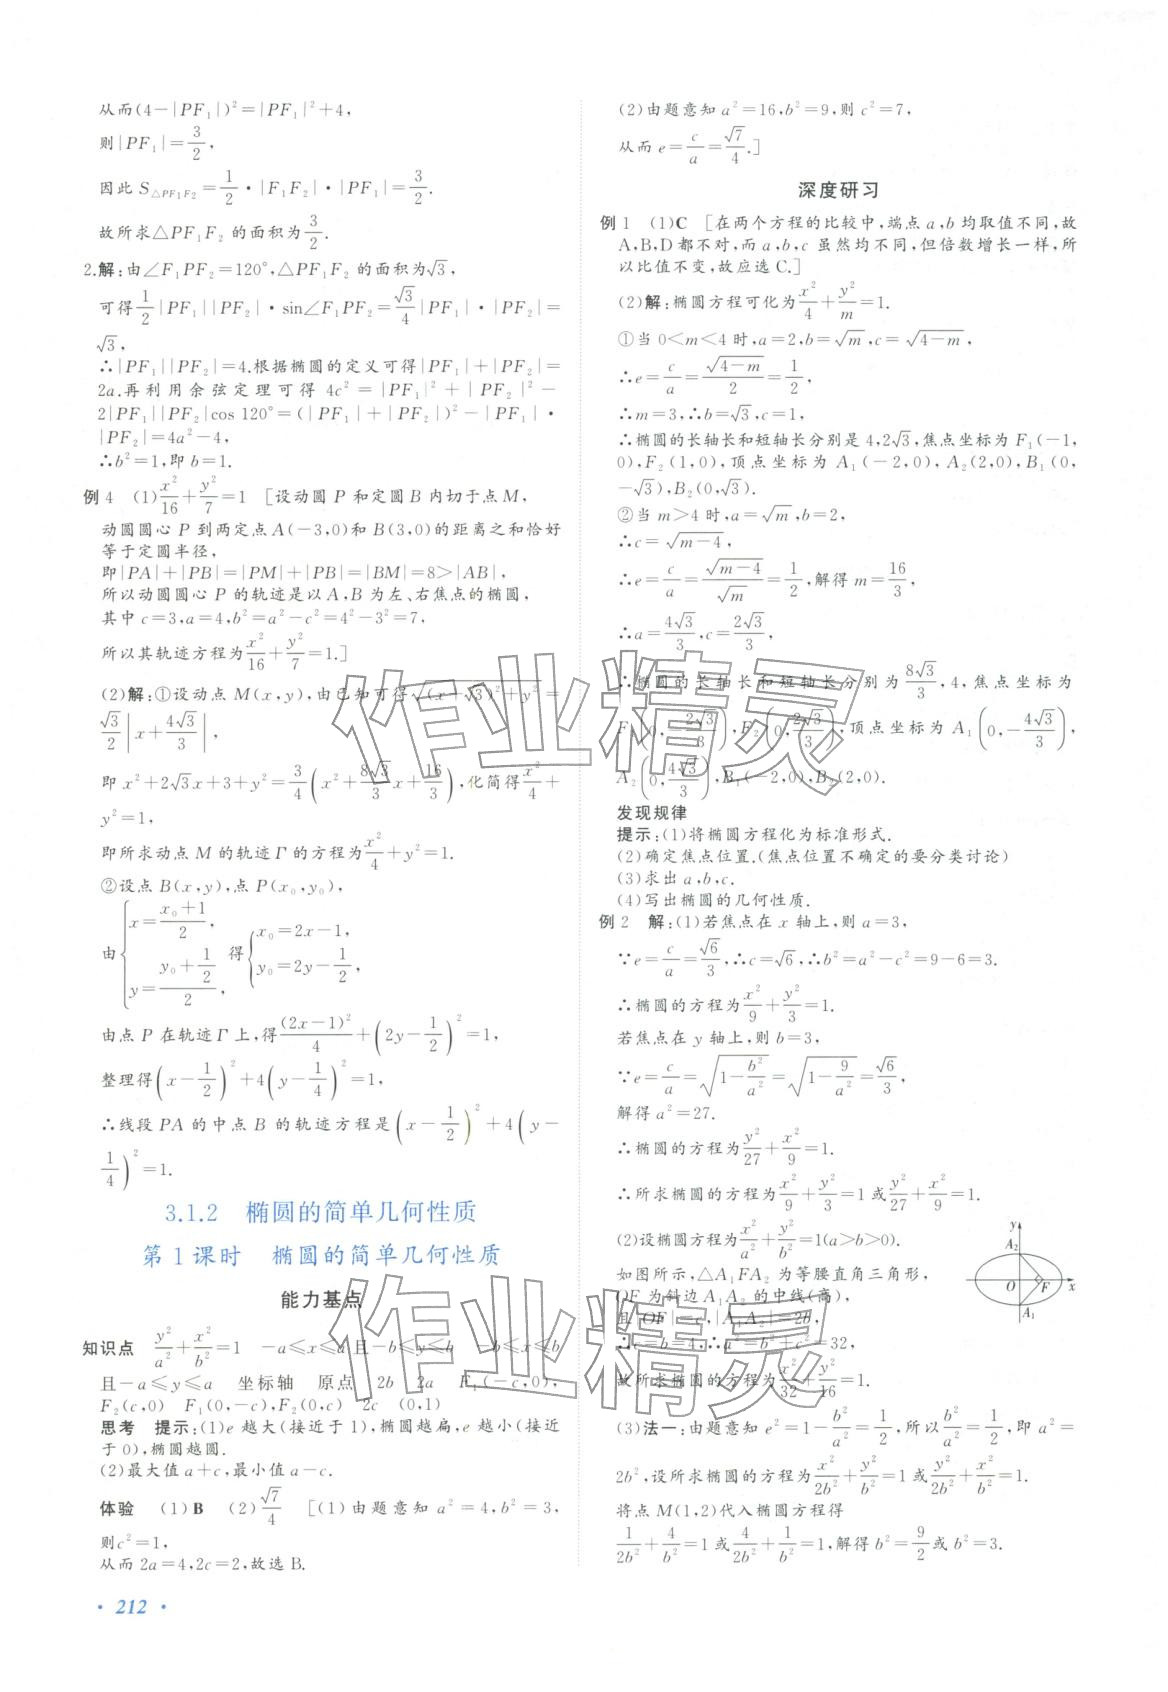 从而(4-|PF₁|)²=|PF₁|²+4,
则|PF₁|=3/2,
因此 S△PF₁F₂=1/2·|F₁F₂|·|PF₁|=3/2.
故所求△PF₁F₂ 的面积为3/2.
2.解:由∠F₁PF₂=120°,△PF₁F₂ 的面积为√3,
可得1/2|PF₁||PF₂|·sin∠F₁PF₂=√3/4|PF₁|·|PF₂|=
√3,
∴|PF₁||PF₂|=4.根据椭圆的定义可得|PF₁|+|PF₂|=
2a.再利用余弦定理可得 4c²=|PF₁|²+|PF₂|²-
2|PF₁||PF₂|cos 120°=(|PF₁|+|PF₂|)²-|PF₁|·
|PF₂|=4a²-4,
∴b²=1,即 b=1.
例 4 (1)x²/16+y²/7=1 [设动圆 P 和定圆 B 内切于点 M,
动圆圆心 P 到两定点 A(-3,0)和 B(3,0)的距离之和恰好
等于定圆半径,
即|PA|+|PB|=|PM|+|PB|=|BM|=8>|AB|,
所以动圆圆心 P 的轨迹是以 A,B 为左、右焦点的椭圆,
其中 c=3,a=4,b²=a²-c²=4²-3²=7,
所以其轨迹方程为x²/16+y²/7=1.]
(2)解:①设动点 M(x,y),由已知可得√((x+√3)²+y²)=
√3/2|x+4√3/3|,
即 x²+2√3x+3+y²=3/4(x²+8√3/3x+16/3),化简得x²/4+
y²=1,
即所求动点 M 的轨迹 Γ 的方程为x²/4+y²=1.
②设点 B(x,y),点 P(x₀,y₀),
由{x=(x₀+1)/2, y=(y₀+1/2)/2, 得{x₀=2x-1, y₀=2y-1/2,
由点 P 在轨迹 Γ 上,得(2x-1)²/4+(2y-1/2)²=1,
整理得(x-1/2)²+4(y-1/4)²=1,
∴线段 PA 的中点 B 的轨迹方程是(x-1/2)²+4(y-
1/4)²=1.
3.1.2 椭圆的简单几何性质
第 1 课时 椭圆的简单几何性质
能力基点
知识点 y²/a²+x²/b²=1 -a≤x≤a且-b≤y≤b -b≤x≤b
且-a≤y≤a 坐标轴 原点 2b 2a F₁(-c,0),
F₂(c,0) F₁(0,-c),F₂(0,c) 2c (0,1)
思考 提示:(1)e 越大(接近于 1),椭圆越扁,e 越小(接近
于 0),椭圆越圆.
(2)最大值 a+c,最小值 a-c.
体验 (1)B (2)√7/4 [(1)由题意知 a²=4,b²=3,
则c²=1,
从而 2a=4,2c=2,故选 B.
(2)由题意知 a²=16,b²=9,则 c²=7,
从而 e=c/a=√7/4.]
深度研习
例 1 (1)C [在两个方程的比较中,端点 a,b 均取值不同,故
A,B,D 都不对,而 a,b,c 虽然均不同,但倍数增长一样,所
以比值不变,故应选 C.]
(2)解:椭圆方程可化为x²/4+y²/m=1.
①当 0<m<4 时,a=2,b=√m,c=√(4-m),
∴e=c/a=√(4-m)/2=1/2,
∴m=3,∴b=√3,c=1,
∴椭圆的长轴长和短轴长分别是 4,2√3,焦点坐标为 F₁(-1,
0),F₂(1,0),顶点坐标为 A₁(-2,0),A₂(2,0),B₁(0,
-√3),B₂(0,√3).
②当 m>4 时,a=√m,b=2,
∴c=√(m-4),
∴e=c/a=√(m-4)/√m=1/2,解得 m=16/3,
∴a=4√3/3,c=2√3/3,
∴椭圆的长轴长和短轴长分别为8√3/3,4,焦点坐标为
F₁(0,-2√3/3),F₂(0,2√3/3),顶点坐标为 A₁(0,-4√3/3),
A₂(0,4√3/3),B₁(-2,0),B₂(2,0).
发现规律
提示:(1)将椭圆方程化为标准形式.
(2)确定焦点位置.(焦点位置不确定的要分类讨论)
(3)求出 a,b,c.
(4)写出椭圆的几何性质.
例 2 解:(1)若焦点在 x 轴上,则 a=3,
∵e=c/a=√6/3,∴c=√6,∴b²=a²-c²=9-6=3.
∴椭圆的方程为x²/9+y²/3=1.
若焦点在 y 轴上,则 b=3,
∵e=c/a=√(1-b²/a²)=√(1-9/a²)=√6/3,
解得 a²=27.
∴椭圆的方程为y²/27+x²/9=1.
∴所求椭圆的方程为x²/9+y²/3=1 或y²/27+x²/9=1.
(2)设椭圆方程为x²/a²+y²/b²=1(a>b>0).
如图所示,△A₁FA₂ 为等腰直角三角形,
OF 为斜边 A₁A₂ 的中线(高),
且|OF|=c,|A₁A₂|=2b,
∴c=b=4,∴a²=b²+c²=32,
故所求椭圆的方程为x²/32+y²/16=1.
y
A₂
O
F
x
A₁
(3)法一:由题意知 e²=1-b²/a²=1/2,所以b²/a²=1/2,即 a²=
2b²,设所求椭圆的方程为x²/2b²+y²/b²=1 或y²/2b²+x²/b²=1.
将点 M(1,2)代入椭圆方程得
1/2b²+4/b²=1 或4/2b²+1/b²=1,解得 b²=9/2或 b²=3.
· 212 ·
作业精灵
作业精灵